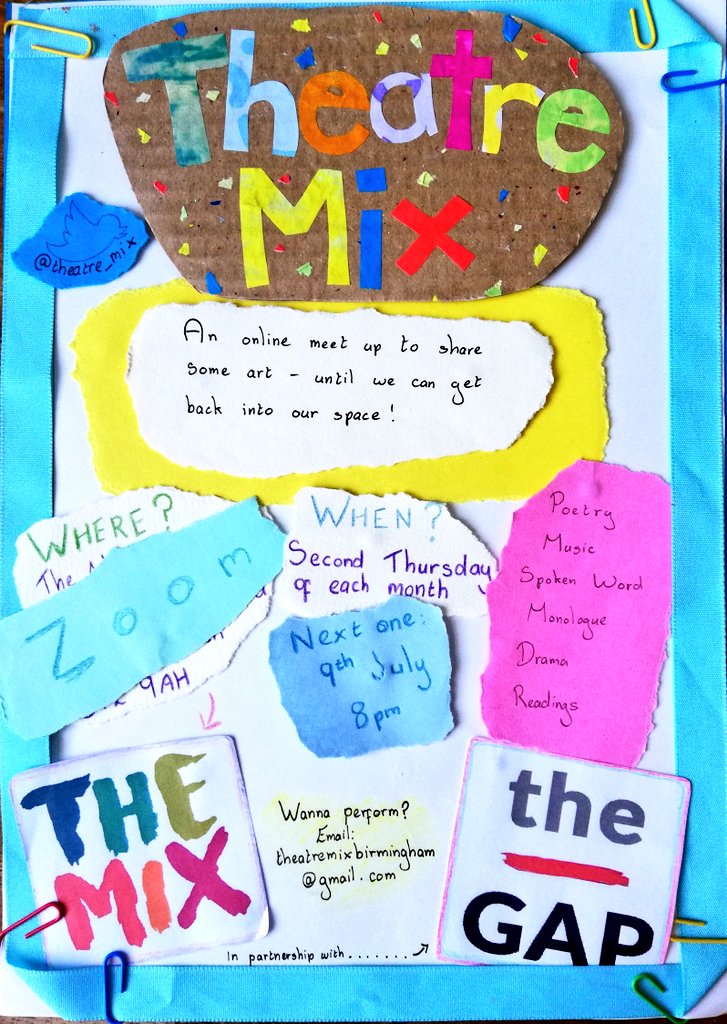 Theatre
Mix
@theatre_mix
An online meet up to share
some art - until we can get
back into our space!
WHERE?
The
Zoom
9AH
WHEN?
Second Thursday
of each month
Next one:
9th July
8pm
Poetry
Music
Spoken Word
Monologue
Drama
Readings
THE
MIX
Wanna perform?
Email:
theatremixbirmingham
@gmail.com
In partnership with.......
the
GAP